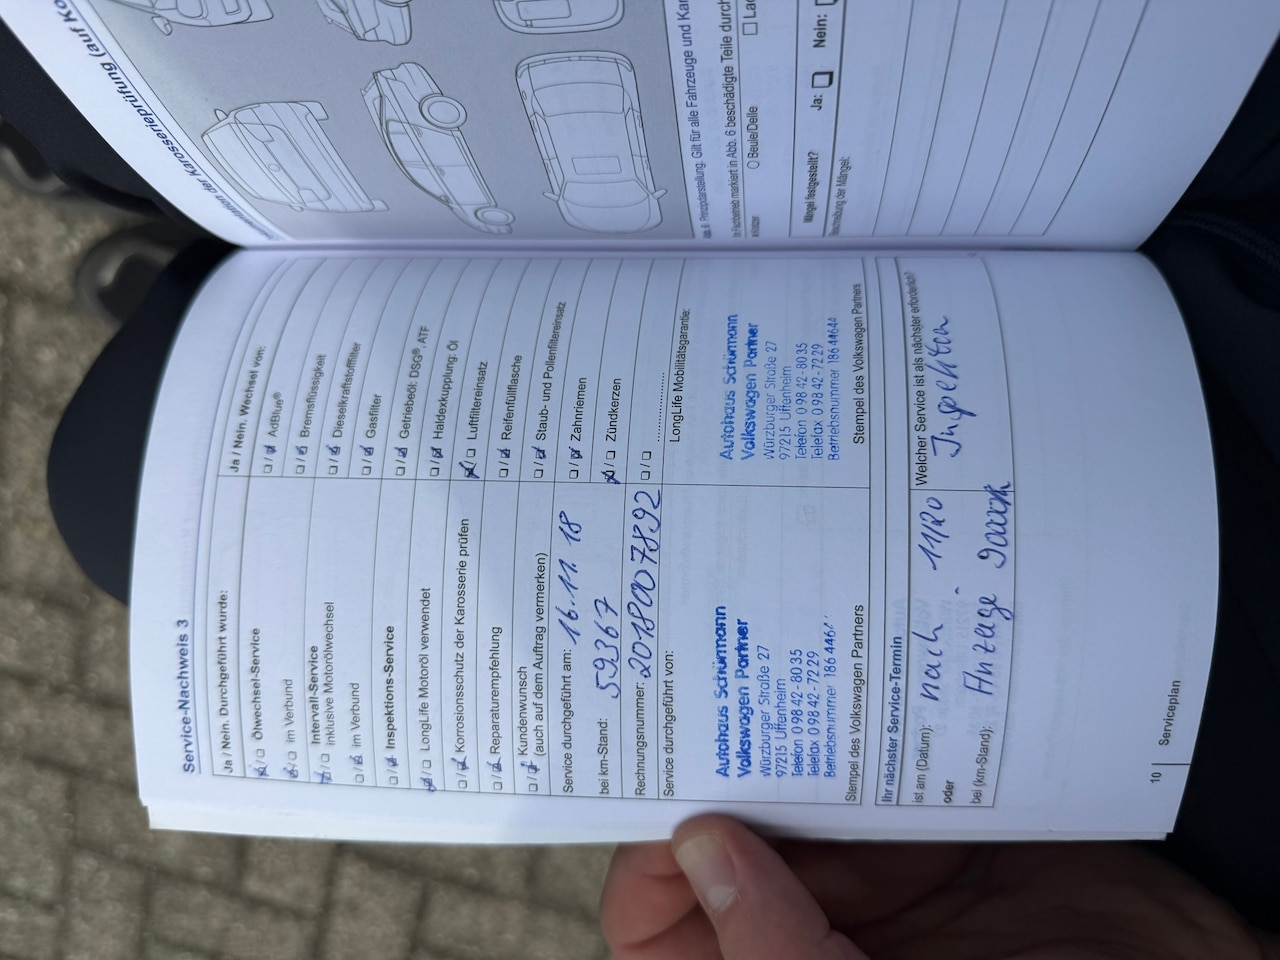 Service-Nachweis 3
Ja / Nein. Durchgeführt wurde:
Ölwechsel-Service
im Verbund
Intervall-Service
inklusive Motorölwechsel
im Verbund
Inspektions-Service
LongLife Motoröl verwendet
Korrosionsschutz der Karosserie prüfen
Reparaturempfehlung
Kundenwunsch
(auch auf dem Auftrag vermerken)
Service durchgeführt am: 16.11.18
bei km-Stand: 59367
Rechnungsnummer: 2018007892
Service durchgeführt von:
Autohaus Schürmann
Volkswagen Partner
Würzburger Straße 27
97215 Uffenheim
Telefon 0 98 42 - 80 35
Telefax 0 98 42 - 72 29
Betriebsnummer 186 446
Stempel des Volkswagen Partners
Ja / Nein. Wechsel von:
AdBlue®
Bremsflüssigkeit
Dieselkraftstofffilter
Gasfilter
Getriebeöl: DSG®, ATF
Haldexkupplung: Öl
Luftfiltereinsatz
Reifenfüllflasche
Staub- und Pollenfiltereinsatz
Zahnriemen
Zündkerzen
LongLife Mobilitätsgarantie:
Autohaus Schürmann
Volkswagen Partner
Würzburger Straße 27
97215 Uffenheim
Telefon 0 98 42 - 80 35
Telefax 0 98 42 - 72 29
Betriebsnummer 186 44644
Stempel des Volkswagen Partners
Ihr nächster Service-Termin
ist am (Datum): nach 11/20
oder
bei (km-Stand): Anzeige
Welcher Service ist als nächster erforderlich?
Inspektion
10 Serviceplan
tation der Karosserieprüfung (auf Ko
Prinzipdarstellung. Gilt für alle Fahrzeuge und Kar
markiert in Abb. 6 beschädigte Teile durch
Beule/Delle
Mängel festgestellt?
Ja:
Nein:
der Mängel: